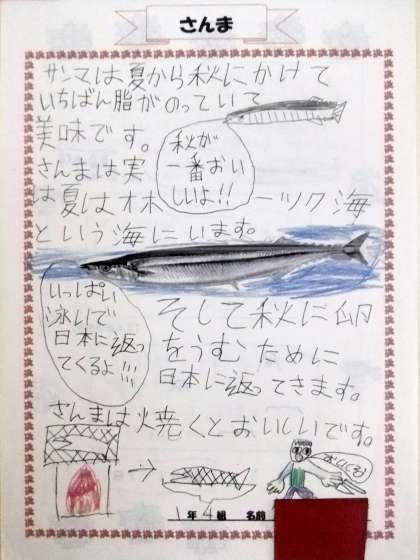 さんま
サンマは夏から秋にかけて
いちばん脂がのっていて
美味です。
さんまは実
は夏はオホーツク海
という海にいます。
秋が
一番おい
しいよ!!
いっぱい
泳いで
日本に返っ
てくるよ!!!
そして秋に卵
をうむために
日本に返ってきます。
さんまは焼くとおいしいです。
1年4組 名前